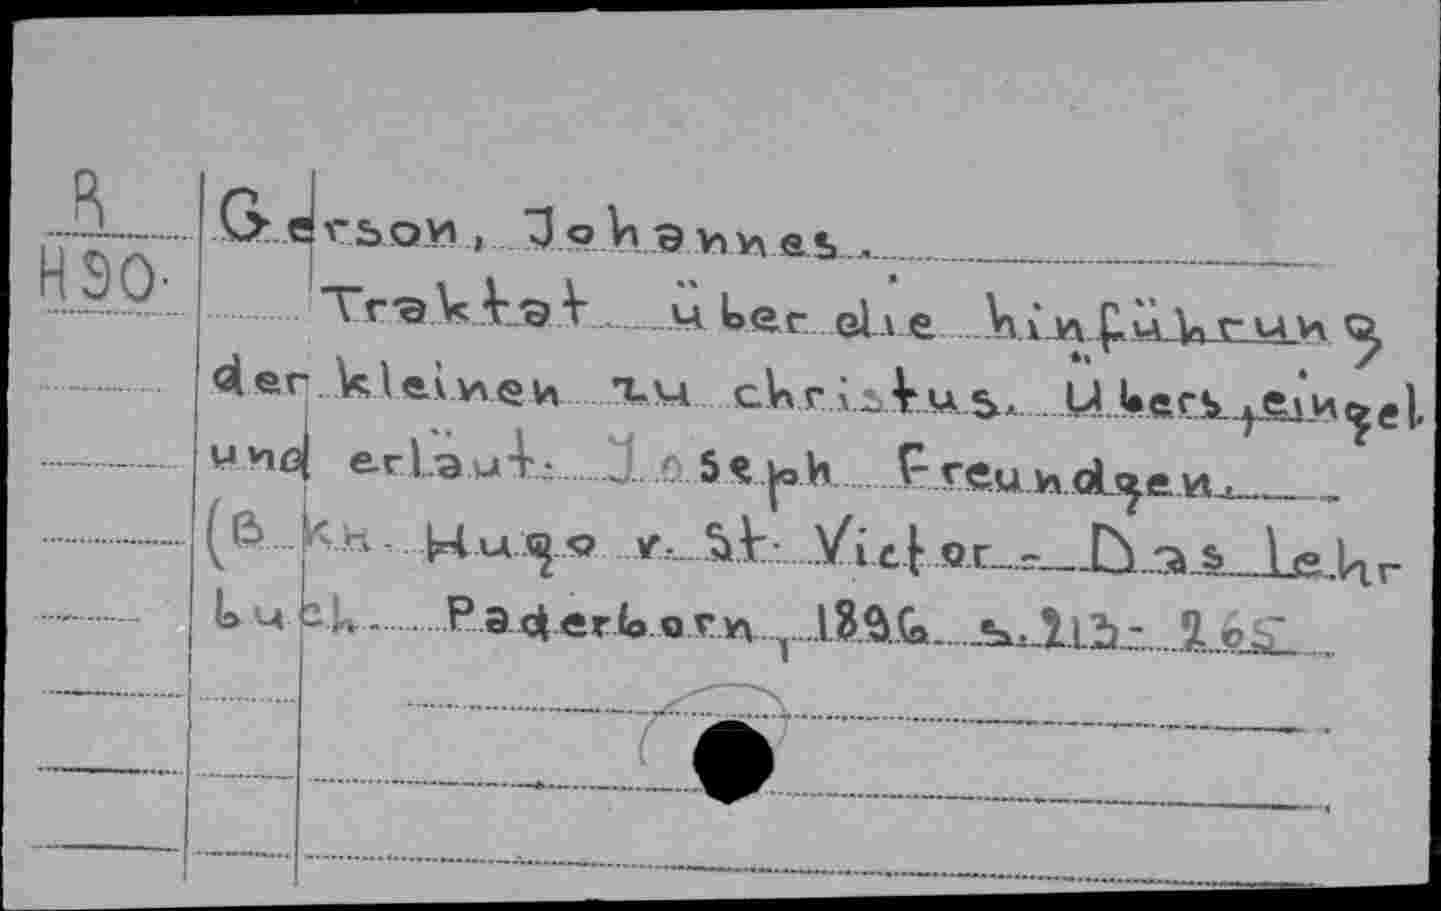 R
H90.
Gerson, Johannes.
Traktat über die hinführung
der kleinen zu christus. Übers, eingel.
und erläut. Joseph Freundgen.
(B Kn. Hugo v. St. Victor - Das lehr
buch. Paderborn, 1896. s.213-